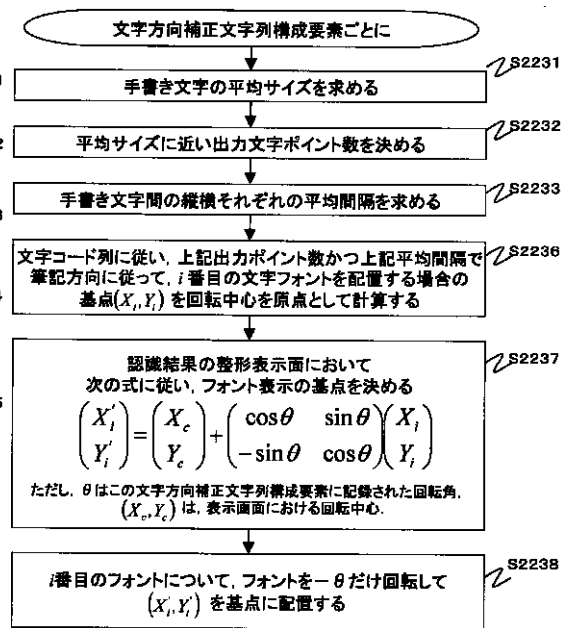 文字方向補正文字列構成要素ごとに
S2231
手書き文字の平均サイズを求める
S2232
平均サイズに近い出力文字ポイント数を決める
S2233
手書き文字間の縦横それぞれの平均間隔を求める
S2236
文字コード列に従い, 上記出力ポイント数かつ上記平均間隔で
筆記方向に従って, i 番目の文字フォントを配置する場合の
基点(Xᵢ,Yᵢ) を回転中心を原点として計算する
S2237
認識結果の整形表示面において
次の式に従い, フォント表示の基点を決める
(Xᵢ′ Yᵢ′) = (X꜀ Y꜀) + (cosθ sinθ −sinθ cosθ)(Xᵢ Yᵢ)
ただし, θはこの文字方向補正文字列構成要素に記録された回転角,
(X꜀,Y꜀) は, 表示画面における回転中心.
S2238
i番目のフォントについて, フォントを−θだけ回転して
(Xᵢ′,Yᵢ′) を基点に配置する